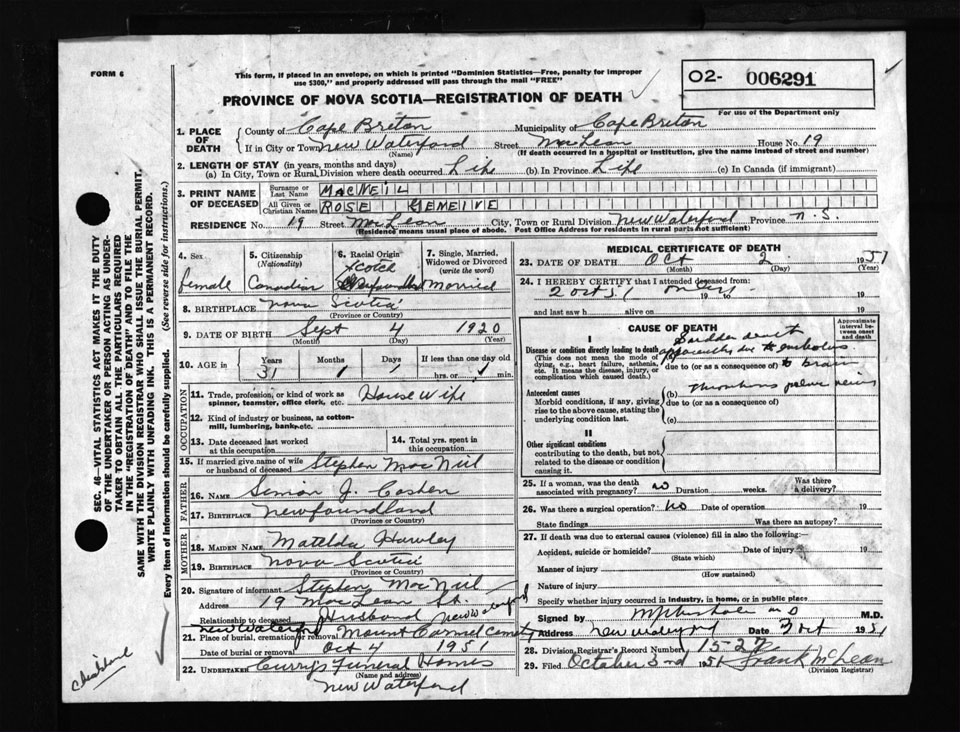 FORM 6
This form, if placed in an envelope, on which is printed "Dominion Statistics—Free, penalty for improper
use $300," and properly addressed will pass through the mail "FREE"
O2- 006291
For use of the Department only
PROVINCE OF NOVA SCOTIA—REGISTRATION OF DEATH
1. PLACE OF DEATH
County of Cape Breton Municipality of Cape Breton
If in City or Town New Waterford Street MacLean House No. 19
(Name) (If death occurred in a hospital or institution, give the name instead of street and number)
2. LENGTH OF STAY (in years, months and days)
(a) In City, Town or Rural Division where death occurred Life (b) In Province Life (c) In Canada (if immigrant)
3. PRINT NAME OF DECEASED
Surname or Last Name MACNEIL
All Given or Christian Names ROSE GEMEIVE
RESIDENCE No. 19 Street MacLean City, Town or Rural Division New Waterford Province N.S.
(Residence means usual place of abode. Post Office Address for residents in rural parts not sufficient)
4. Sex female
5. Citizenship (Nationality) Canadian
6. Racial Origin Scotch
7. Single, Married, Widowed or Divorced (write the word) Married
8. BIRTHPLACE Nova Scotia
(Province or Country)
9. DATE OF BIRTH Sept 4 1920
(Month) (Day) (Year)
10. AGE in Years 31 Months 1 Days 1 If less than one day old hrs. or min.
OCCUPATION
11. Trade, profession, or kind of work as spinner, teamster, office clerk, etc. House Wife
12. Kind of industry or business, as cotton-mill, lumbering, bank, etc.
13. Date deceased last worked at this occupation
14. Total yrs. spent in this occupation
15. If married give name of wife or husband of deceased Stephen MacNeil
FATHER
16. NAME J.
17. BIRTHPLACE Newfoundland
(Province or Country)
MOTHER
18. MAIDEN NAME Matilda Hawley
19. BIRTHPLACE Nova Scotia
(Province or Country)
20. Signature of informant Stephen MacNeil
Address 19 MacLean St. New Waterford
Relationship to deceased Husband
21. Place of burial, cremation or removal New Waterford Mount Carmel Cemetery
Date of burial or removal Oct 4 1951
22. UNDERTAKER Curry's Funeral Homes
(Name and address)
New Waterford
MEDICAL CERTIFICATE OF DEATH
23. DATE OF DEATH Oct 2 1951
(Month) (Day) (Year)
24. I HEREBY CERTIFY that I attended deceased from:
2 Oct 51 only 19 to 19
and last saw h alive on 19
CAUSE OF DEATH
Approximate interval between onset and death
I
Disease or condition directly leading to death
(This does not mean the mode of dying, e.g., heart failure, asthenia, etc. It means the disease, injury, or complication which caused death.)
Sudden death
apparently due to embolus
due to (or as a consequence of) to brain
Antecedent causes
Morbid conditions, if any, giving rise to the above cause, stating the underlying condition last.
(b) Thrombous pelvic veins
due to (or as a consequence of)
(c)
II
Other significant conditions
contributing to the death, but not related to the disease or condition causing it.
25. If a woman, was the death associated with pregnancy? No Duration weeks. Was there a delivery?
26. Was there a surgical operation? No Date of operation 19
State findings Was there an autopsy?
27. If death was due to external causes (violence) fill in also the following:—
Accident, suicide or homicide? Date of injury 19
(State which)
Manner of injury
(How sustained)
Nature of injury
Specify whether injury occurred in industry, in home, or in public place
Signed by M.D.
Address New Waterford Date 3 Oct 1951
28. Division Registrar's Record Number 15-27
29. Filed October 3rd 1951 Frank McLean
(Division Registrar)
SEC. 46—VITAL STATISTICS ACT MAKES IT THE DUTY
OF THE UNDERTAKER OR PERSON ACTING AS UNDER-
TAKER TO OBTAIN ALL THE PARTICULARS REQUIRED
IN THE "REGISTRATION OF DEATH" AND TO FILE THE
SAME WITH THE DIVISION REGISTRAR WHO SHALL ISSUE THE BURIAL PERMIT.
WRITE PLAINLY WITH UNFADING INK. THIS IS A PERMANENT RECORD.
Every item of information should be carefully supplied. (See reverse side for instructions.)